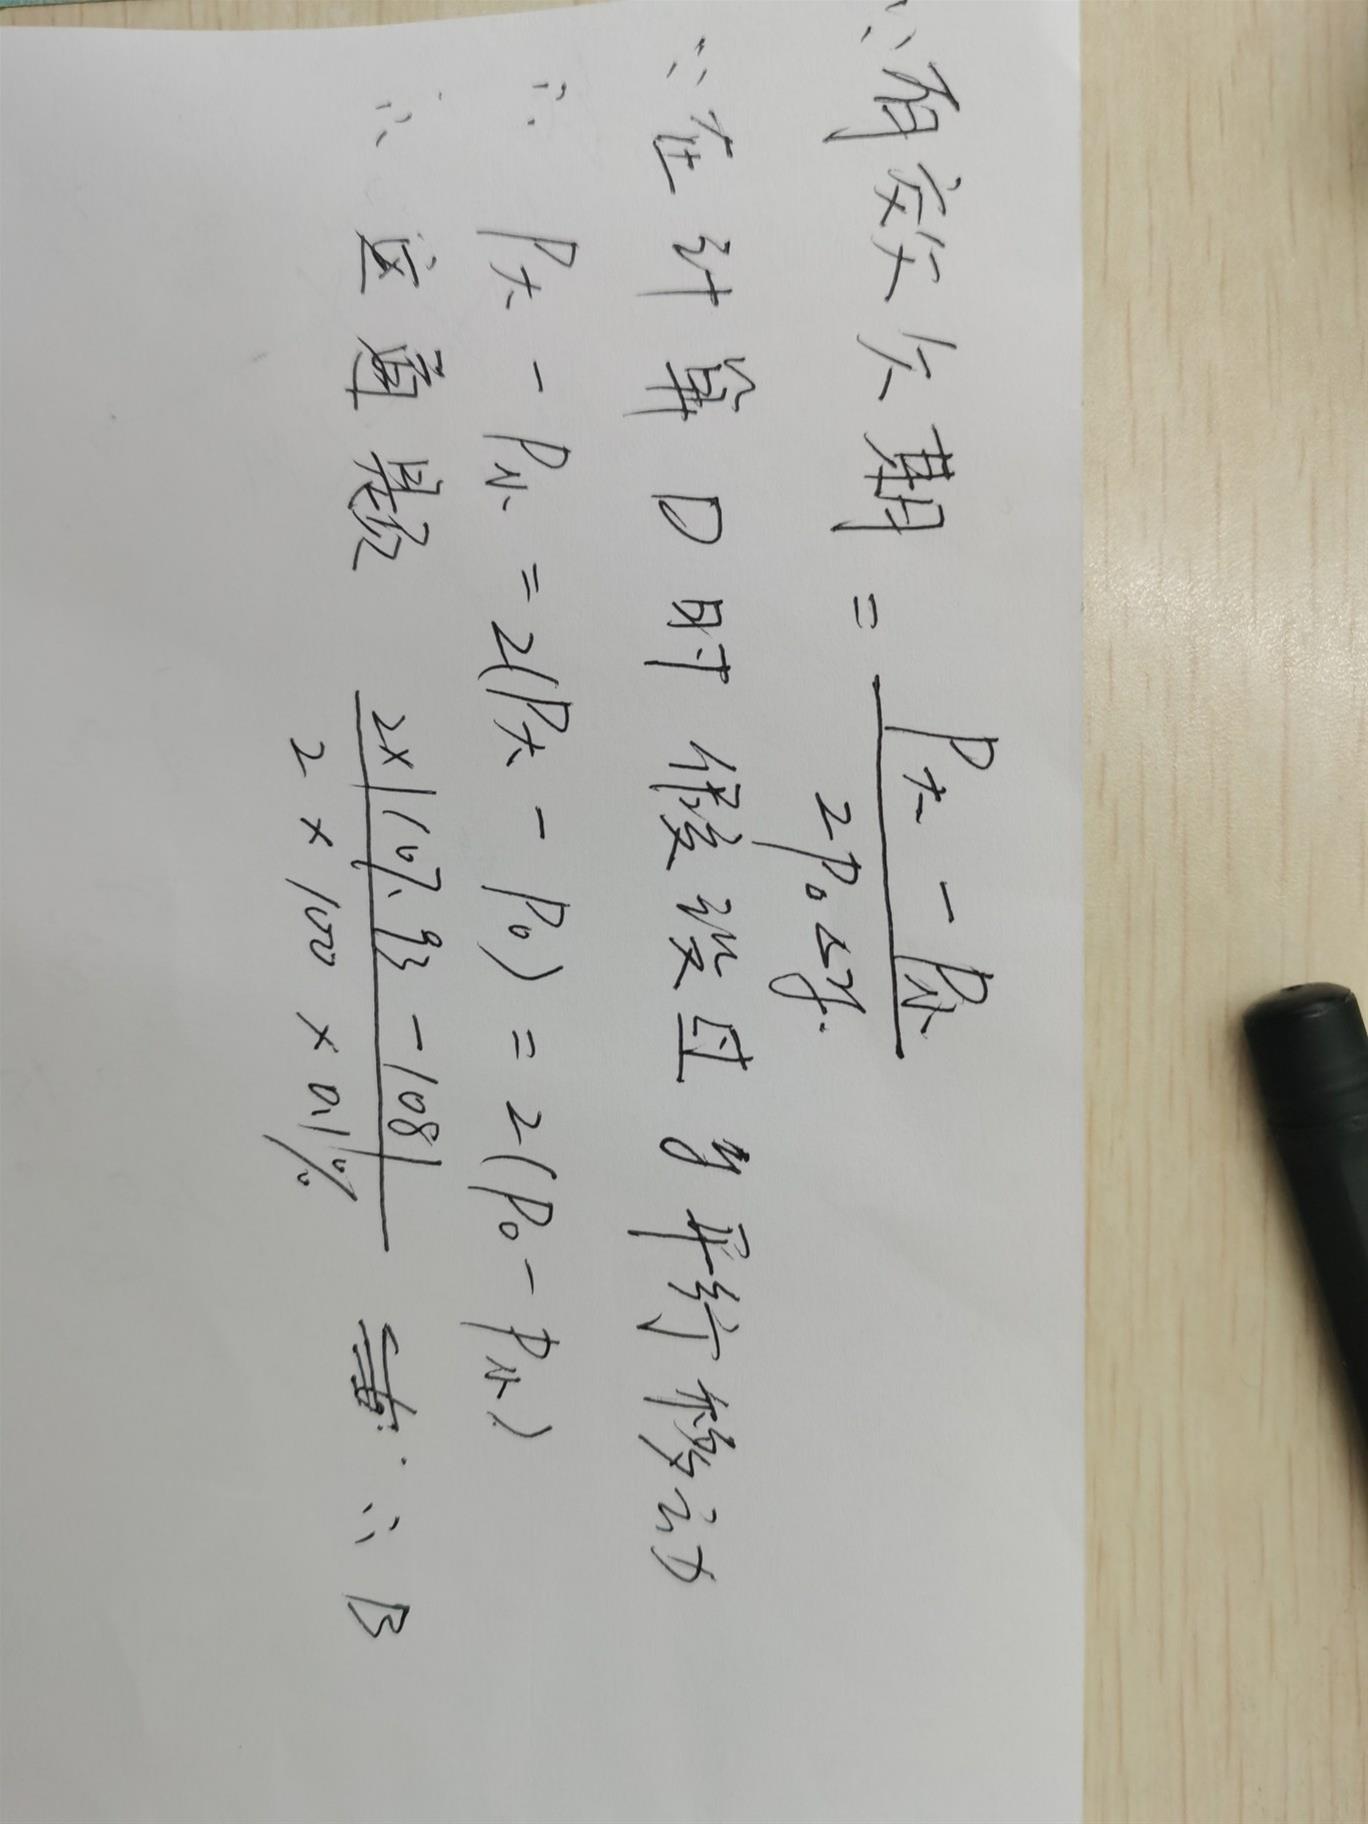 ∵有效久期 = (P大 - P小) / (2P₀△y)
∵在计算D时假设过了平行移动
∴ P大 - P小 = 2(P大 - P₀) = 2(P₀ - P小)
∴ 这道题 2×|107.93 - 108| / (2×100×0.1%) ∴ B